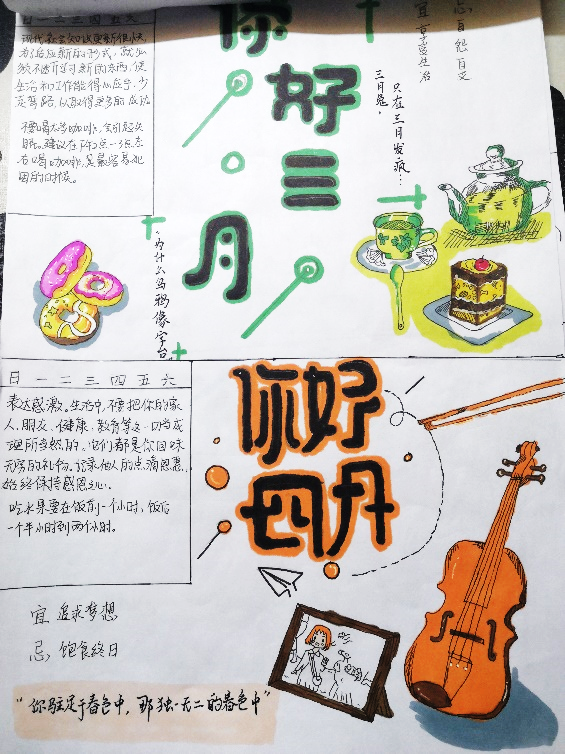 日一二三四五六
现代社会知识更新很快
为了适应新的形式，就必
须不断学习新的东西，使
生活和工作能得心应手，少
走弯路，从取得更多的成功
不要喝太多咖啡，会引起头
你好
三月
三月兔，
只在三月发疯…
忌 自怨自艾
宜 享受生活
“为什么乌鸦像字台
日一二三四五六
表达感激。生活中，不要把你的家
人、朋友、健康、教育等这一切当成
理所当然的。它们都是你回味
无穷的礼物。记录他人的点滴恩惠，
始终保持感恩之心。
吃水果要在饭前一个小时，饭后
一个半小时到两个小时。
你好
四月
宜 追求梦想
忌 饱食终日
“你驻足于春色中，那独一无二的春色中”